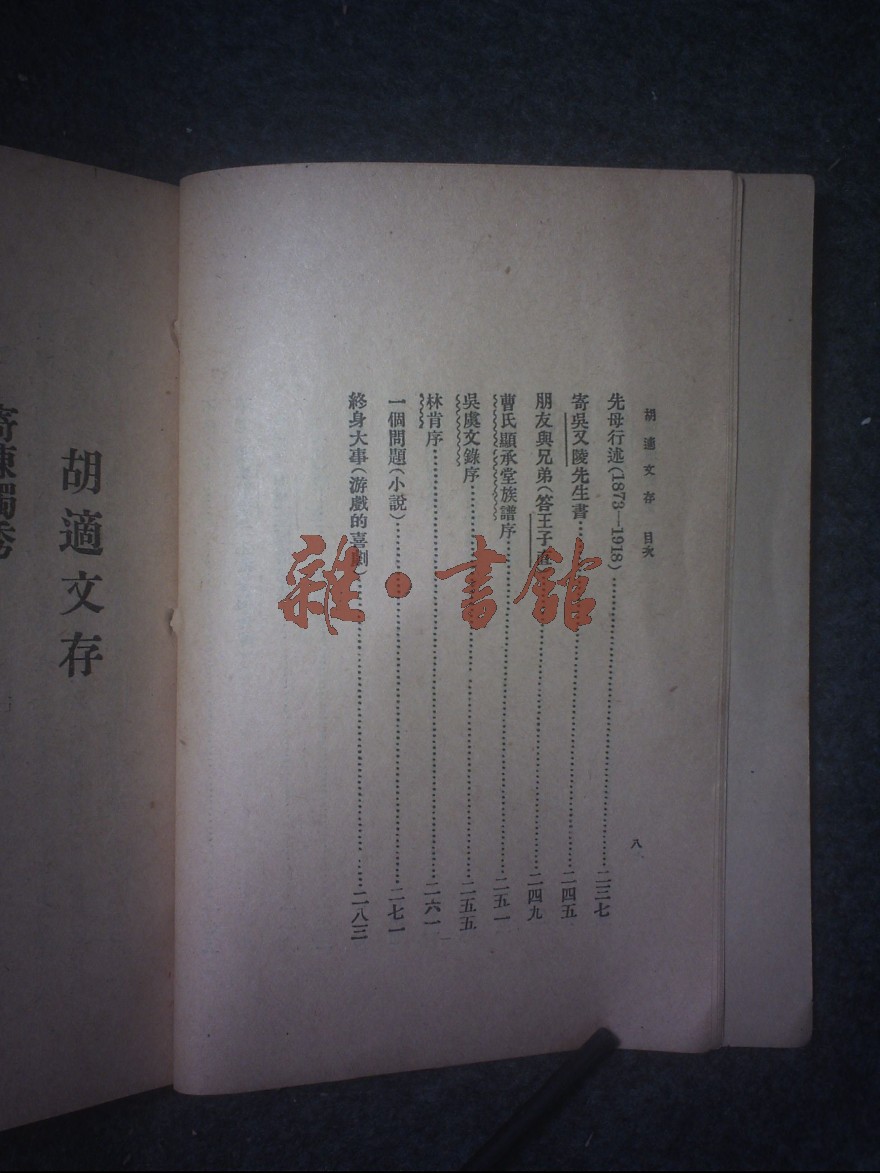 胡適文存 目次
八
先母行述(1873—1918)……二三七
寄吳又陵先生書……二四五
朋友與兄弟(答王子直)……二四九
曹氏顯承堂族譜序……二五一
吳虞文錄序……二五五
林肯序……二六一
一個問題(小說)……二七一
終身大事(游戲的喜劇)……二八三
胡適文存
雜·書館